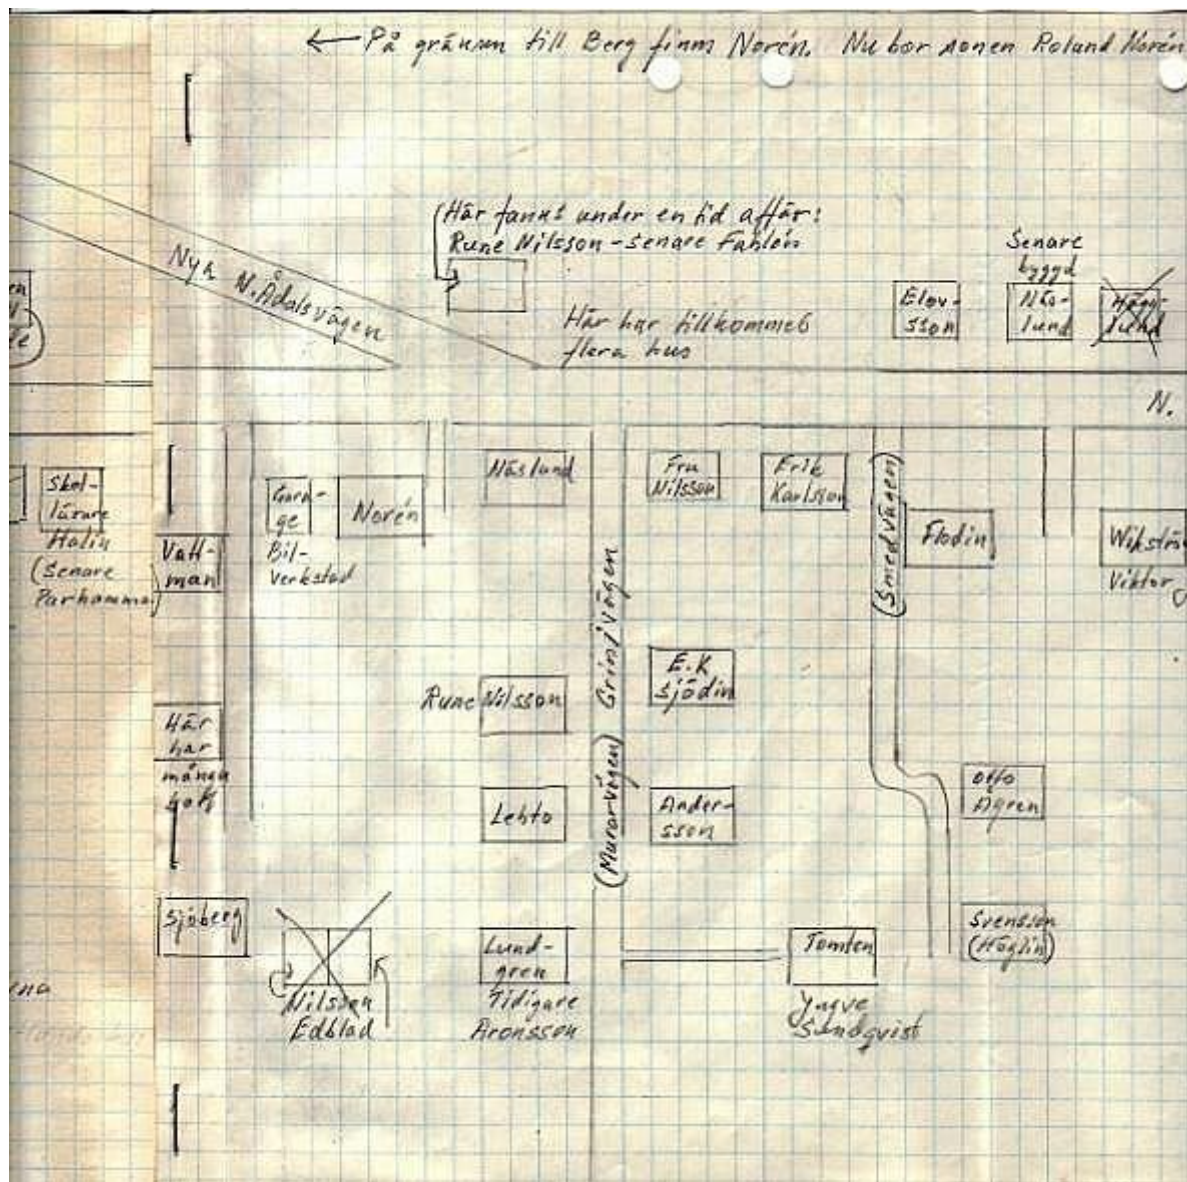 ← På gränsen till Berg finns Norén. Nu bor sonen Roland Norén
(Här fanns under en tid affär:
Rune Nilsson - senare Fahlén
Nya N. Ådalsvägen
Här har tillkommet
flera hus
Elov-
sson
Senare
byggd
Näs-
lund
Hägg-
lund
N.
Skol-
lärare
Halin
(Senare
Parhamma
Vall-
man
Gara-
ge
Bil-
verkstad
Norén
Näslund
Fru
Nilsson
Erik
Karlsson
(Smedvägen)
Flodin
Wikströ
Viktor
Grindvägen
(Murarvägen)
Rune Nilsson
E.K
Sjödin
Här
har
många
bott
Lehto
Ander-
sson
Otto
Ågren
Sjöberg
Nilsson
Edblad
Lund-
gren
Tidigare
Aronsson
Tomten
Yngve
Sundqvist
Svensson
(Häglin)
na